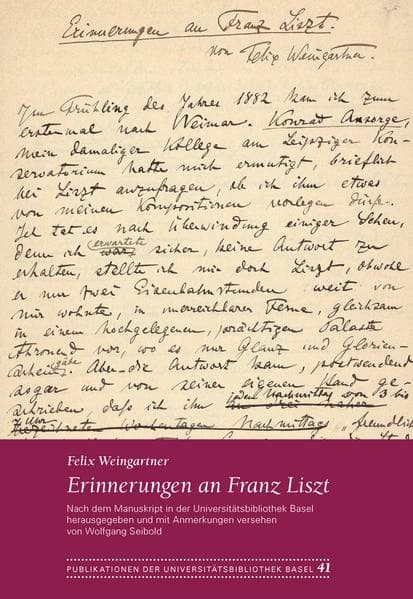 Erinnerungen an Franz Liszt.
von Felix Weingartner.
Im Frühling des Jahres 1882 kam ich zum
erstenmal nach Weimar. Konrad Ansorge,
mein damaliger Kollege am Leipziger Kon-
servatorium hatte mich ermutigt, brieflich
bei Liszt anzufragen, ob ich ihm etwas
von meinen Kompositionen vorlegen dürfe.
Ich tat es nach Überwindung einiger Scheu,
denn ich erwartete sicher, keine Antwort zu
erhalten, stellte ich mir doch Liszt, obwohl
er nur zwei Eisenbahnstunden weit von
mir wohnte, in unerreichbarer Ferne, gleichsam
in einem hochgelegenen, prächtigen Palaste
thronend vor, wo es nur Glanz und Glorien-
gäbe. Aber die Antwort kam, postwendend
sogar und von seiner eigenen Hand ge-
schrieben, daß ich ihn jeden Nachmittag von 3 bis
Uhr Nachmittags „freundlich
Felix Weingartner
Erinnerungen an Franz Liszt
Nach dem Manuskript in der Universitätsbibliothek Basel
herausgegeben und mit Anmerkungen versehen
von Wolfgang Seibold
PUBLIKATIONEN DER UNIVERSITÄTSBIBLIOTHEK BASEL 41